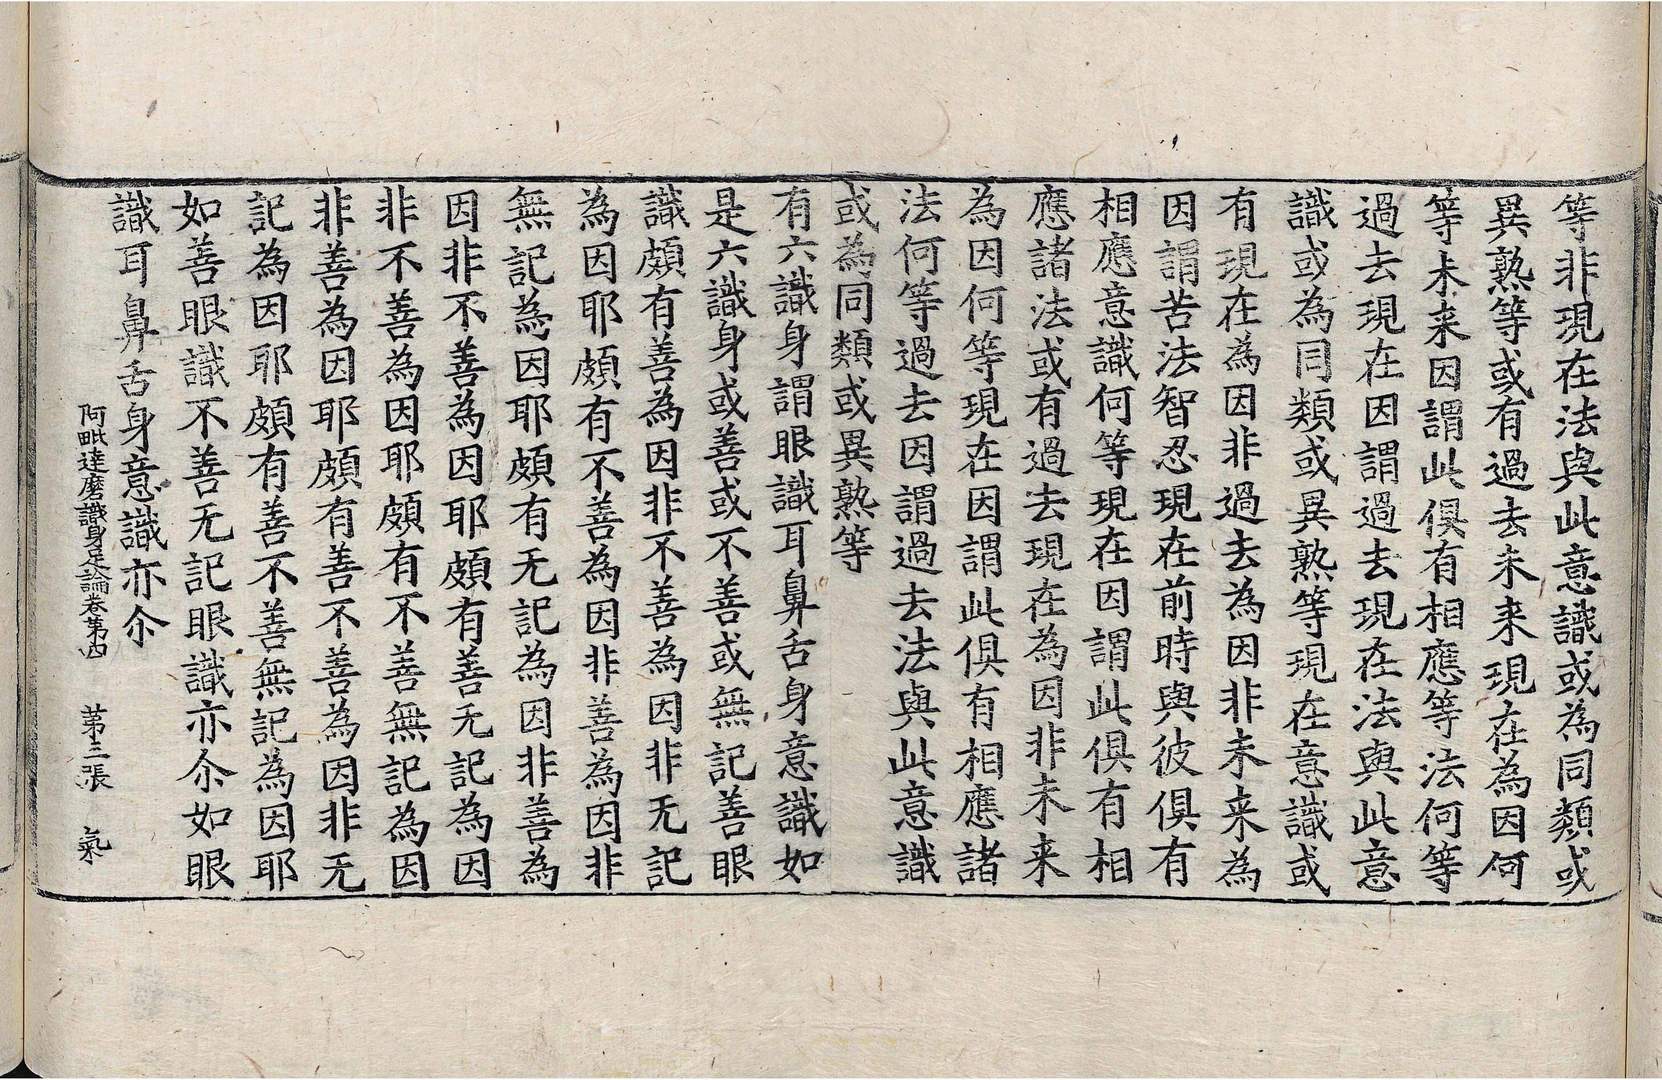 等非現在法與此意識或為同類或
異熟等或有過去未来現在為因何
等未来因謂此俱有相應等法何等
過去現在因謂過去現在法與此意
識或為同類或異熟等現在意識或
有現在為因非過去為因非未来為
因謂苦法智忍現在前時與彼俱有
相應意識何等現在因謂此俱有相
應諸法或有過去現在為因非未来
為因何等現在因謂此俱有相應諸
法何等過去因謂過去法與此意識
或為同類或異熟等
有六識身謂眼識耳鼻舌身意識如
是六識身或善或不善或無記善眼
識頗有善為因非不善為因非无記
為因耶頗有不善為因非善為因非
無記為因耶頗有无記為因非善為
因非不善為因耶頗有善无記為因
非不善為因耶頗有不善無記為因
非善為因耶頗有善不善為因非无
記為因耶頗有善不善無記為因耶
如善眼識不善无記眼識亦尒如眼
識耳鼻舌身意識亦尒
阿毗達磨識身足論卷第四　第三張　氣